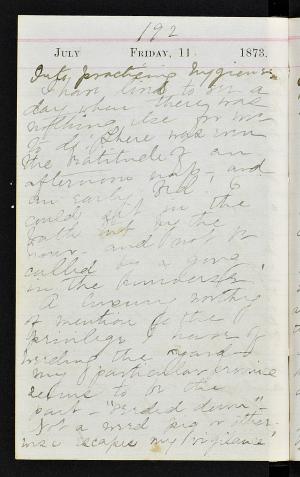 192
July Friday, 11 1873.
practicing hygiene
I have lived to see a
day when there was
nothing else for me
to do. There was even
the Beatitude of an
afternoon nap, and
an early bed. I
could sit in the
bath by the
hour and not be
called be a gong
in the
A luxury worthy
of mention is the
privilege I have of
weeding the yard
my particular province
seems to be the
part "weeded down"
Not a weed pig or other-
wise escapes my vigilance